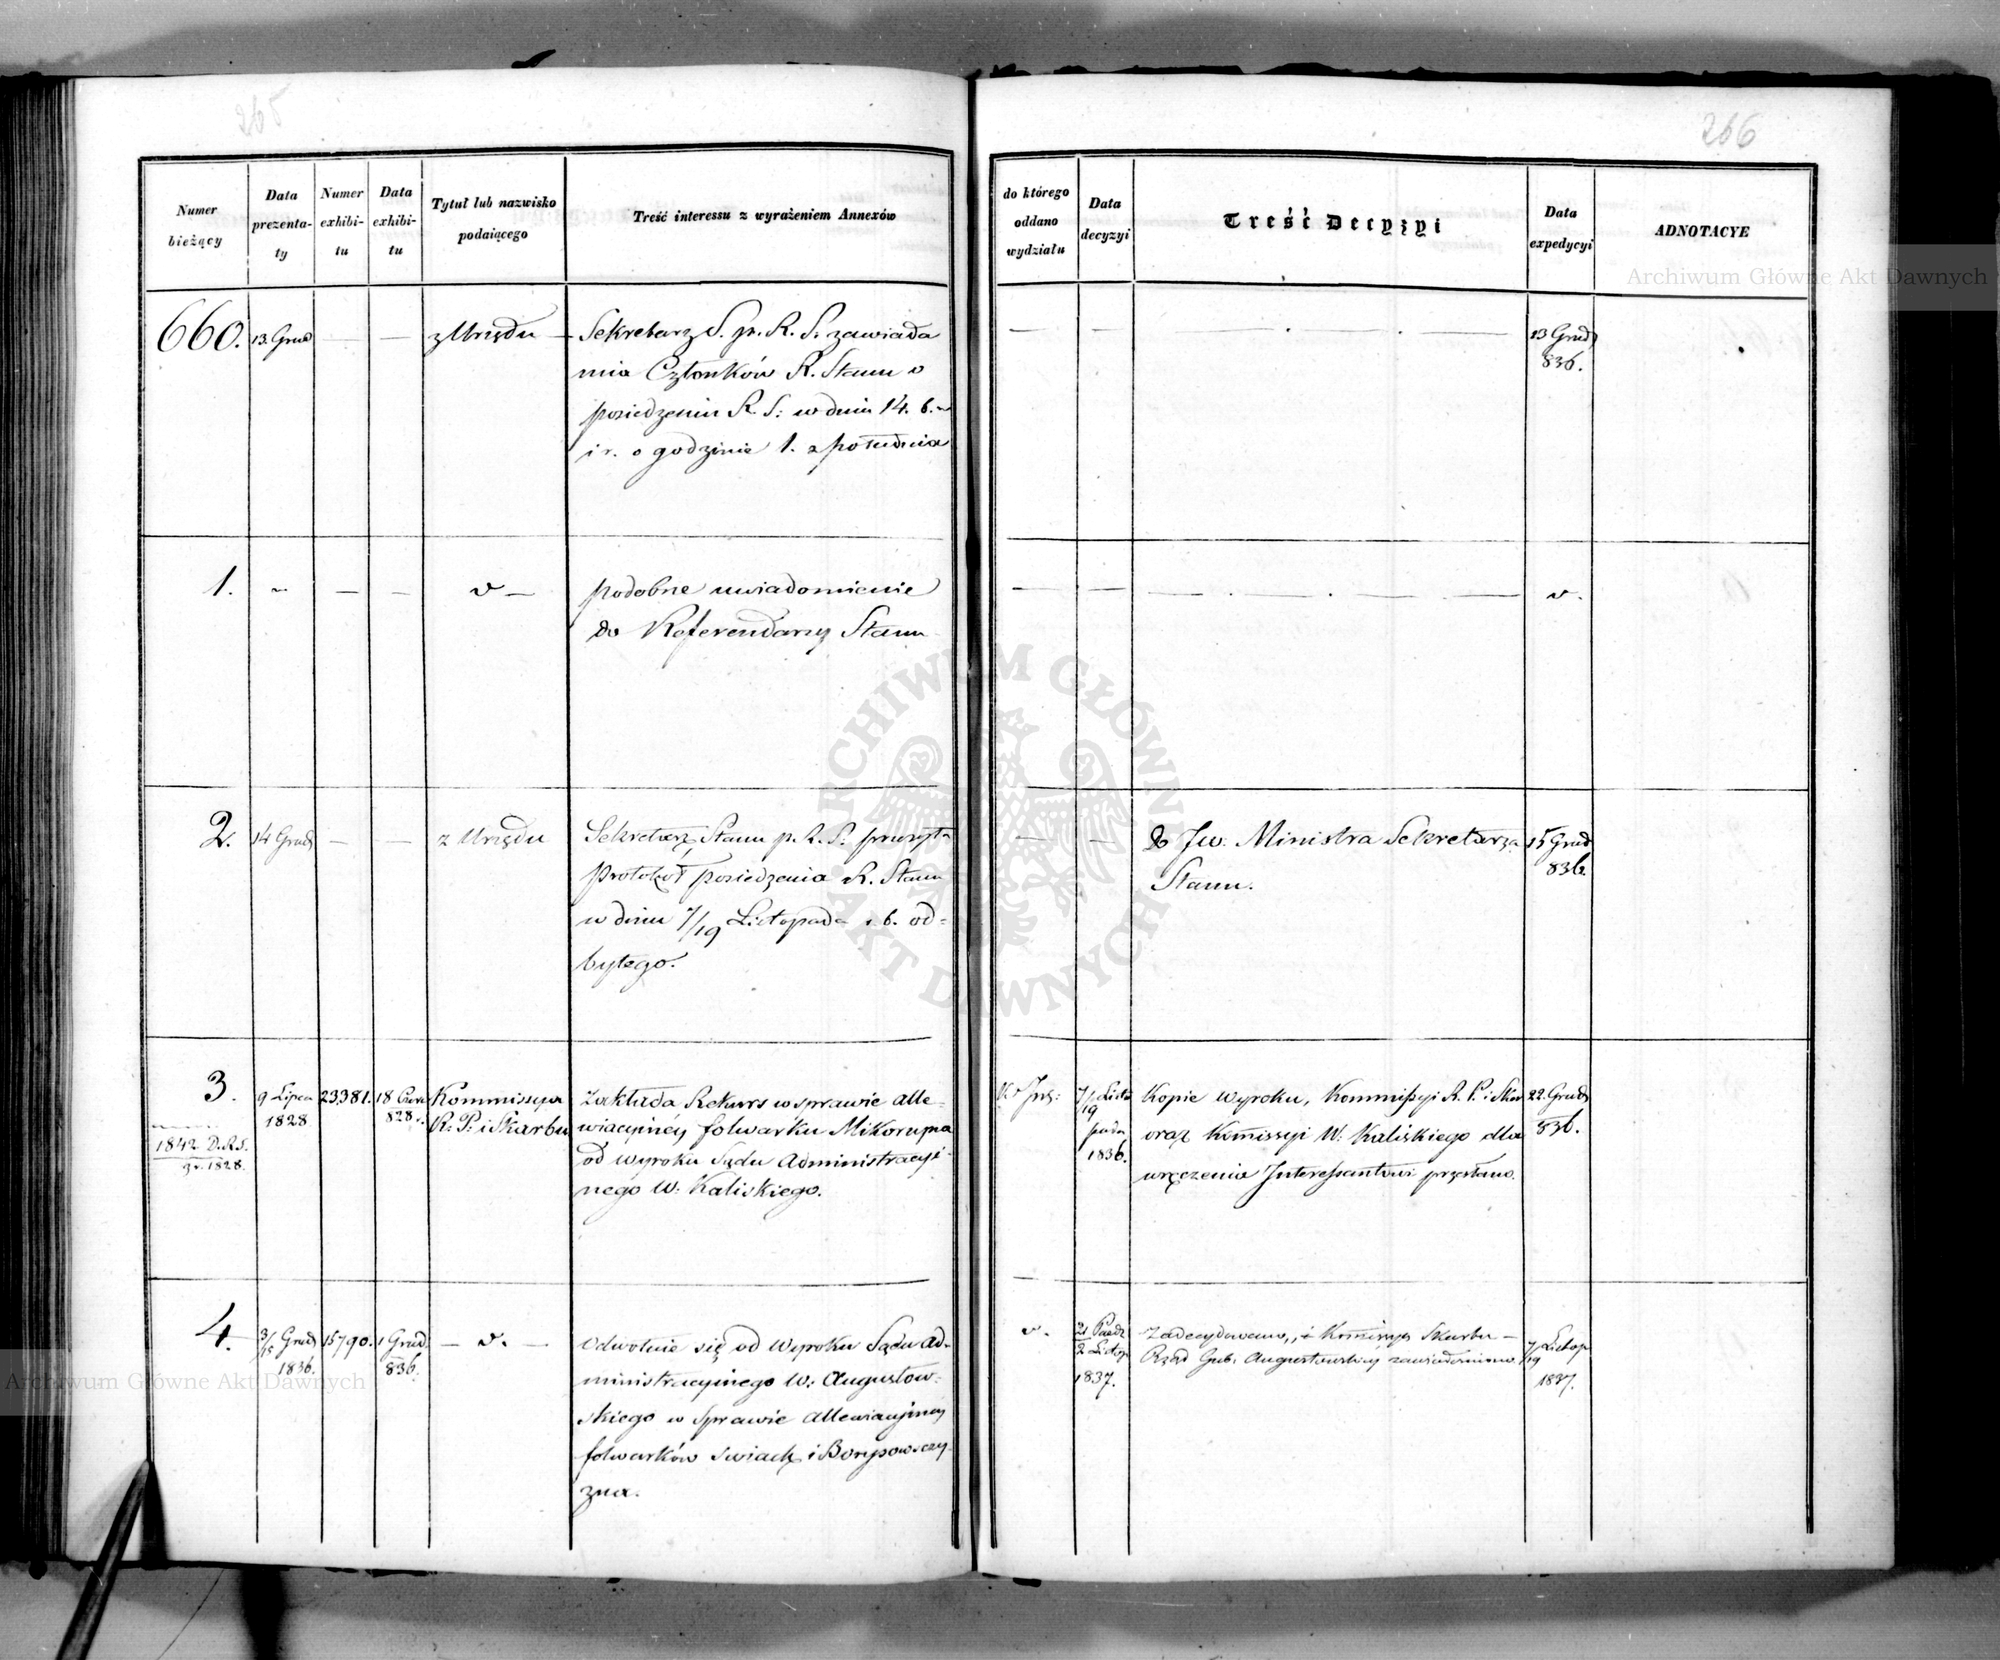 265
266
Numer
bieżący
Data
prezenta-
ty
Numer
exhibi-
tu
Data
exhibi-
tu
Tytuł lub nazwisko
podaiącego
Treść interessu z wyrażeniem Annexów
do którego
oddano
wydziału
Data
decyzyi
Treść Decyzyi
Data
expedycyi
ADNOTACYE
660.
13. Grud
— —
z Urzędu —
Sekretarz S. pr. R. S. zawiada
mia Członków R. Stanu o
posiedzeniu R. S: w dniu 14. b.
i r. o godzinie 1. z południa
13 Grud
836.
1.
podobne uwiadomienie
do Referendarzy Stanu
2.
14 Grud
z Urzędu
Sekretarz Stanu p. R. S. przesyła
Protokół posiedzenia R. Stanu
w dniu 7/19 Listopada r. b. od=
bytego.
do Jw. Ministra Sekretarza
Stanu.
15 Grud
836.
3.
1842. D.R.S.
z r. 1828.
9 Lipca
1828
23,381.
18 Czerw
828.
Kommissya
R. P. i Skarbu
Zakłada Rekurs w sprawie alle-
wiacyinéy folwarku Mikorzyna
od wyroku Sądu Administracyi-
nego W: Kaliskiego.
7/19 Listo
pada
1836.
Kopie wyroku, Kommissyi R. P. i Skar
oraz Kommissyi W: Kaliskiego dla
wręczenia Interessantowi przesłano.
22. Grud
836.
4.
3/15 Grud
1836.
15790.
1 Grud
836.
— v. —
Odwołuie się od Wyroku Sądu Ad-
ministracyinego W: Augustow-
skiego w sprawie allewiacyiney
folwarków Swiack i Borysowszczy-
zna.
v.
21 Paźdz
2 Listop
1837.
Zadecydowano, i Kommissya Skarbu —
Rząd Gub. Augustowskiey zawiadomiono
7/19 Listop
1837.
Archiwum Główne Akt Dawnych
ARCHIWUM GŁÓWNE AKT DAWNYCH
Archiwum Główne Akt Dawnych